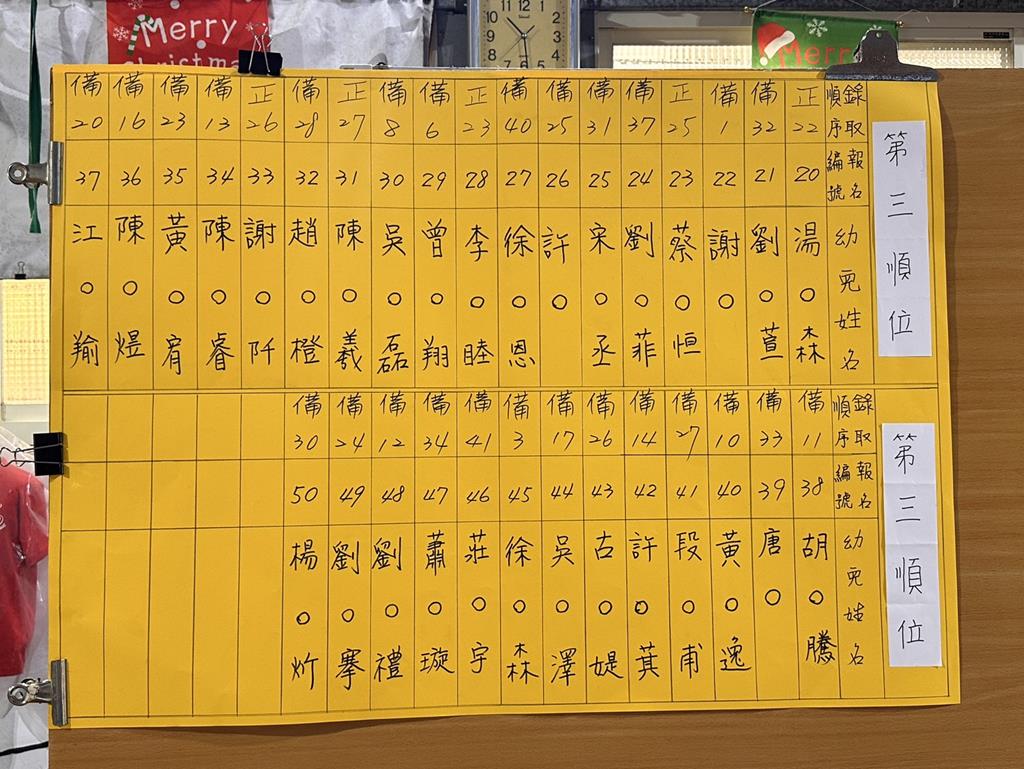 Merry
Christmas
Merry
第三順位
順序 錄取
正22 備32 備1 正25 備37 備31 備25 備40 正23 備6 備8 正27 備28 正26 備13 備23 備16 備20
編號 報名
20 21 22 23 24 25 26 27 28 29 30 31 32 33 34 35 36 37
幼兒姓名
湯○森
劉○萱
謝○
蔡○恒
劉○菲
宋○丞
許○
徐○恩
李○睦
曾○翔
吳○磊
陳○羲
趙○橙
謝○阡
陳○睿
黃○宥
陳○煜
江○翰
第三順位
順序 錄取
備11 備33 備10 備27 備14 備26 備17 備3 備41 備34 備12 備24 備30
編號 報名
38 39 40 41 42 43 44 45 46 47 48 49 50
幼兒姓名
胡○騰
唐○
黃○逸
段○甫
許○萁
古○媞
吳○澤
徐○森
莊○宇
蕭○璇
劉○禮
劉○搴
楊○炘